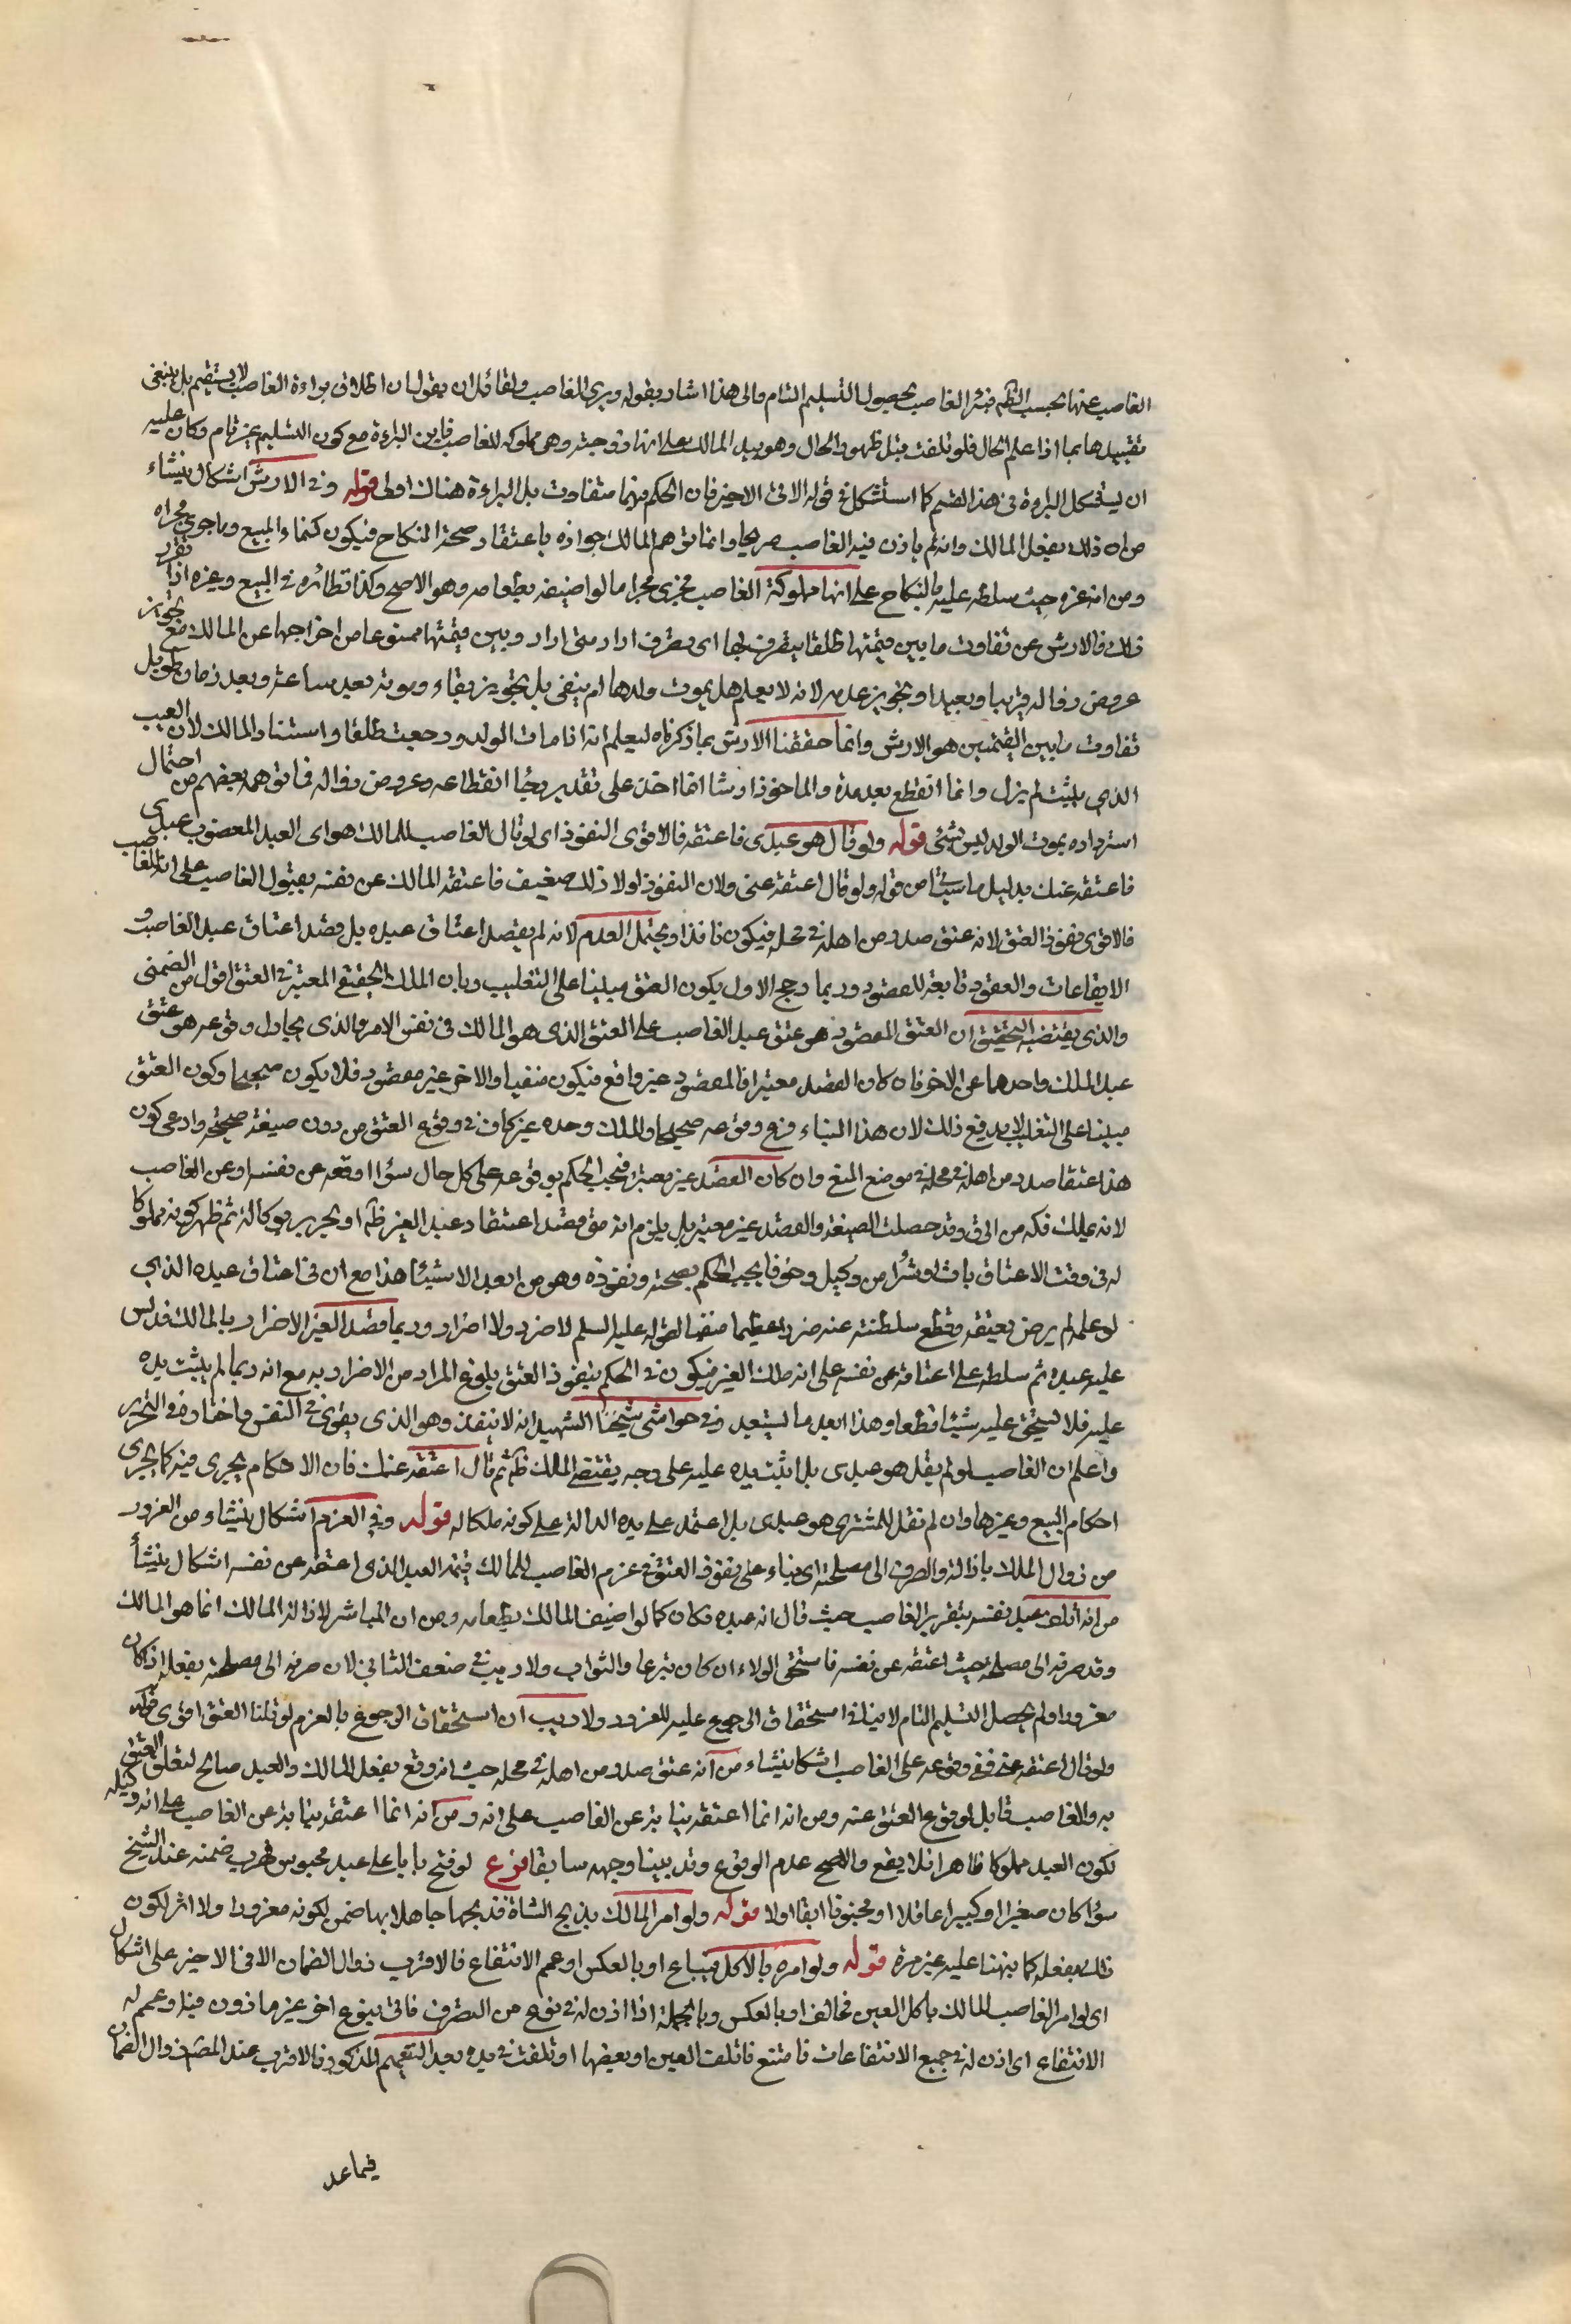 الغاصب عنها بحسب الظم فبرئ الغاصب بحصول التسليم التام والى هذا اشار بقوله وبرئ الغاصب ولقائل ان يقول ان اطلاق براءة الغاصب لا يستقيم بل ينبغى
تقييدها بما اذا علم الحال فلو تلفت قبل ظهور الحال وهو بيد المالك على انها زوجته وهى مملوكه للغاصب فاين البراءة مع كون التسليم غير تام وكان عليه
ان يستشكل البراءة فى هذا القسم كما استشكل فى قوله الاتى الاخير فان الحكم فيهما متفاوت بل البراءة هناك اولى قوله وفى الارش اشكال ينشاء
من ان ذلك بفعل المالك وانه لم ياذن فيه الغاصب صريحا وانما توهم المالك جوازه باعتقاد صحة النكاح فيكون كنماء المبيع وما جرى مجراه
ومن انه غره حيث سلطه عليه بالنكاح على انها مملوكة الغاصب فجرى مجرا ما لو اضيفه بطعامه وهو الاصح وكذا نظائره فى البيع وغيره اذا تقرر
ذلك فالارش عن تفاوت ما بين قيمتها طلقا يتصرف بها اى تصرف اراد متى اراد وبين قيمتها ممنوعا من اخراجها عن المالك مع تجويز
عروض زواله قريبا وبعيدا وتجويز عدمه لانه لا يعلم هل يموت ولدها ام يبقى بل يتجويز بقاء وموته بعد ساعة وبعد زمان طويل
تفاوت ما بين القيمتين هو الارش وانما حققنا الارش بما ذكرناه ليعلم انه اذا مات الولد ورجعت طلقا واستناد المالك لان العيب
الذى يثبت لم يزل وانما انقطع بعد مدة والماخوذ ارشا انما اخذ على تقدير رجاء انقطاعه وعروض زواله فما توهمه بعضهم من احتمال
استرداده بموت الولد ليس بشئ قوله ولو قال هو عبدى فاعتقه فالاقوى النفوذ اى لو قال الغاصب للمالك هو اى العبد المغصوب عبدى
فاعتقه عنك بدليل ما سيأتى من قوله ولو قال اعتقه عنى ولان النفوذ لولا ذلك ضعيف فاعتقه المالك عن نفسه بقبول الغاصب على انه للغاصب
فالاقوى نفوذ العتق لانه عتق صدر من اهله فى محله فيكون نافذا ويحتمل العدم لانه لم يقصد اعتاق عبده بل قصد اعتاق عبد الغاصب و
الايقاعات والعقود تابعة للقصود وربما رجح الاول بكون العتق مبنيا على التغليب وبان الملك الحقيقى المعتبر فى العتق اقوى من الضمنى
والذى يقتضيه التحقيق ان العتق المقصود هو عتق عبد الغاصب على العتق الذى هو المالك فى نفس الامر والذى يحاول وقوعه هو عتق
عبد الملك واحدهما غير الاخر فان كان القصد معتبرا فالمقصود غير واقع فيكون منفيا والاخر غير مقصود فلا يكون صحيحا وكون العتق
مبنيا على التغليب لا يدفع ذلك لان هذا البناء فرع وقوعه صحيحا والملك وحده غير كاف فى وقوع العتق من دون صيغة صحيحة وادعى كون
هذا عتقا صدر من اهله فى محله فى موضع المنع وان كان القصد غير معتبر فيجب الحكم بوقوعه على كل حال سواء اوقعه عن نفسه او عن الغاصب
لانه يملك فكه من الرق وقد حصلت الصيغة والقصد غير معتبر بل يلزم انه متى قصد اعتقاد عبد الغير ظم او تحريره بوكالة ثم ظهر كونه مملوكا
له فى وقت الاعتاق بارث او شراء من وكيل ونحوها يجب الحكم بصحته ونفوذه وهو من ابعد الاشياء هذا مع ان فى اعتاق عبده الذى
لو علم لم يرض بعتقه وقطع سلطنته عنه ضررا عظيما منفيا لقوله عليه السلم لا ضرر ولا اضرار وربما قصد الغير الاضرار بالمالك فدلس
عليه عبده ثم سلطه على اعتاقه عن نفسه على انه ملك الغير فيكون فى الحكم بنفوذ العتق بلوغ المراد من الاضرار به مع انه ربما لم يثبت يده
عليه فلا يستحق عليه شيئا قطعا وهذا ابعد ما يستبعد وفى حواشى شيخنا الشهيد انه لا ينفذ وهو الذى يقوى فى النفس واختاره فى التحرير
واعلم ان الغاصب لو لم يقل هو عبدى بل اثبت يده عليه على وجه يقتضى المالك ظم ثم قال اعتقه عنك فان الاحكام يجرى فيه كما يجرى
احكام البيع وغيرها وان لم نقل للمشترى هو عبدى بل اعتمد على يده الدالة على كونه ملكا له قوله وفى الغرم اشكال ينشاء من الغرور
من زوال الملك بازالته والصرف الى مصلحته اى بناء على نفوذ العتق فى غرم الغاصب للمالك قيمة العبد الذى اعتقه عن نفسه اشكال ينشأ
من انه اتلف عبد نفسه بتغرير الغاصب حيث قال انه عبده فكان كما لو اضيف المالك بطعامه ومن ان المباشر لازالة المالك انما هو المالك
وقد صرفه الى مصلحته حيث اعتقه عن نفسه فاستحق الولاء ان كان تبرعا والثواب ولا ريب فى ضعف الثانى لان صرفه الى مصلحته بفعله اذ كان
مغرورا ولم يحصل التسليم التام لا ينافى استحقاق الرجوع عليه للغرور ولا ريب ان استحقاق الرجوع بالغرم لو قلنا العتق اقوى قوله
ولو قال اعتقه عنى ففى وقوعه على الغاصب اشكال ينشاء من انه عتق صدر من اهله فى محله حيث انه وقع بفعل المالك والعبد صالح لتعلق العتق
به والغاصب قابل لوقوع العتق عنه ومن انه انما اعتقه نيابة عن الغاصب على انه ومن انه انما اعتقه نيابة عن الغاصب على انه وكيله
لكون العبد مملوكا ظاهرا فلا يقع والاصح عدم الوقوع وقد بينا وجهه سابقا فرع لو فتح بابا على عبد محبوس فهرب ضمنه عند الشيخ
سواء كان صغيرا او كبيرا عاقلا او مجنونا ابقا اولا قوله ولو امر المالك بذبح الشاة فذبحها جاهلا بها ضمن لكونه مغرورا ولا اثر لكون
ذلك بفعله كما نبهنا عليه غير مرة قوله ولو امره بالاكل فباع او بالعكس او عمم الانتفاع فالاقرب زوال الضمان الا فى الاخير على اشكال
اى لو امر الغاصب المالك باكل العين فخالف او بالعكس وبالجملة اذا اذن له فى نوع من التصرف فاتى بنوع اخر غير ماذون فيه او عمم له
الانتفاع اى اذن له فى جميع الانتفاعات فامتنع فاتلف العين او بعضها او تلفت فى يده بعد التعميم المذكور فالاقرب عند المصنف زوال الضمان
فيما عد